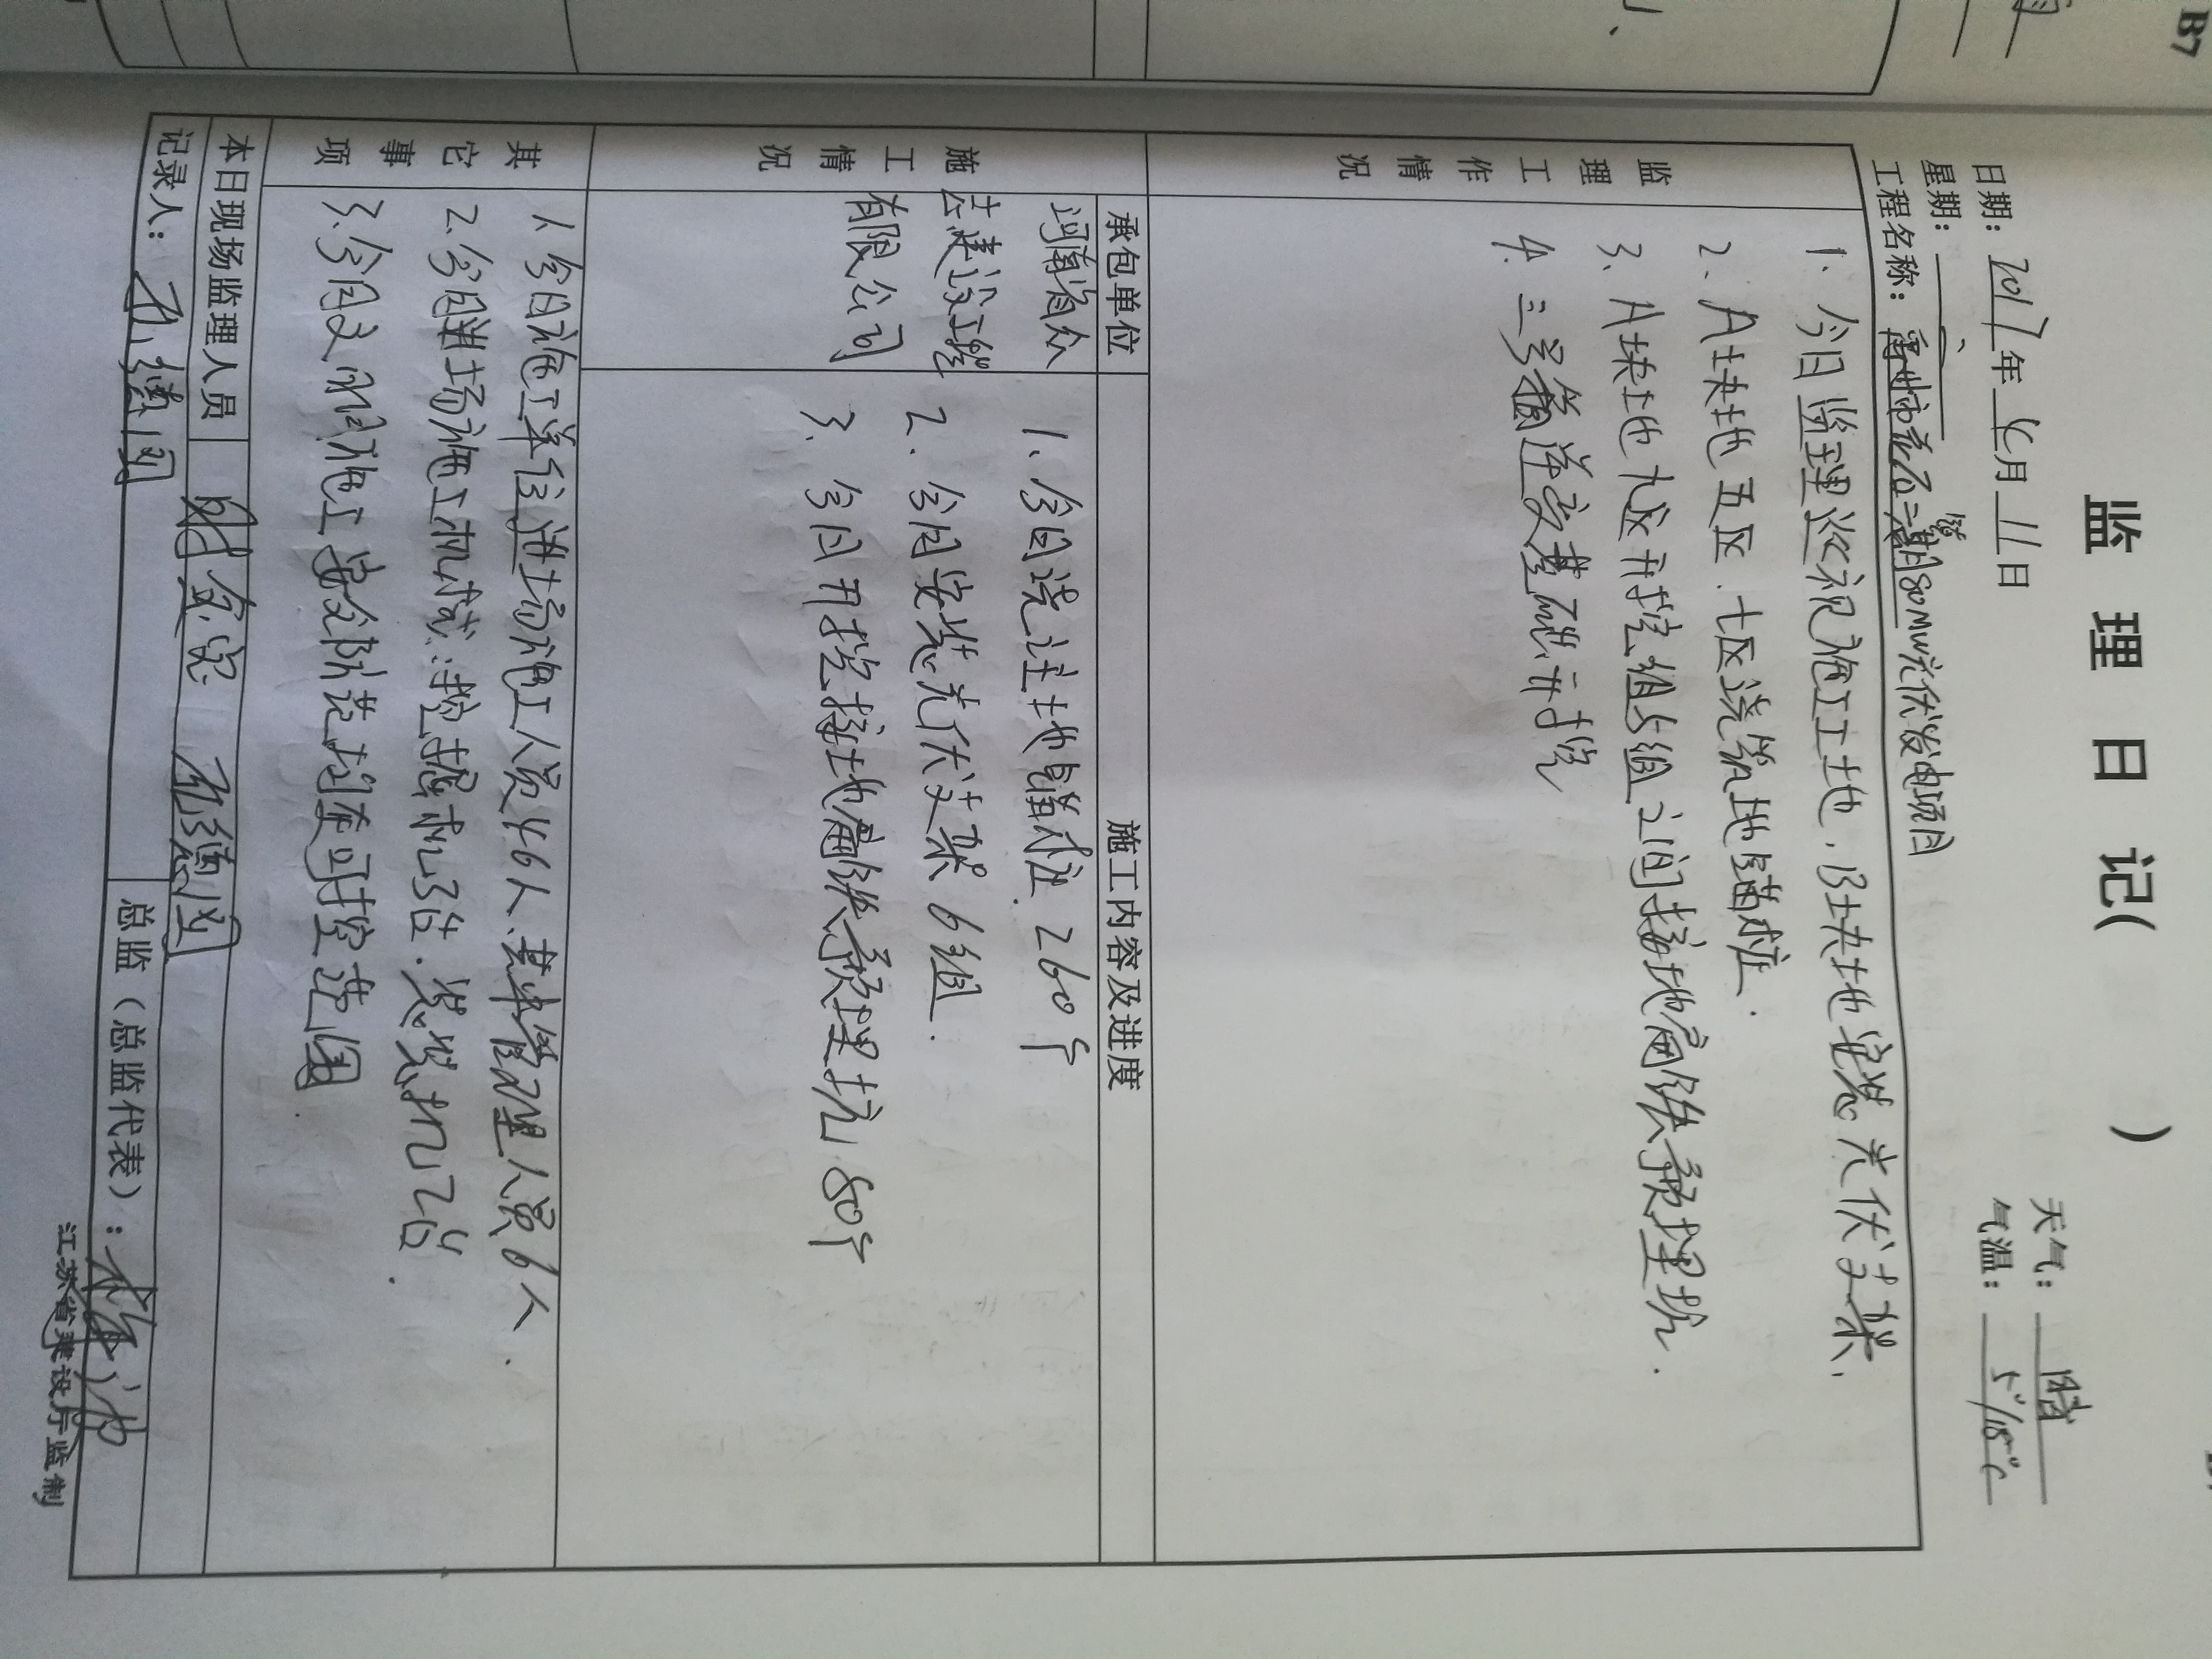 B7
监理日记( )
日期：2017年4月11日
天气：晴
星期：二
气温：5°/18°C
工程名称：禹州市 80MW光伏发电项目
监理工作情况
1、今日监理巡视施工工地，B块地安装光伏支架、
2、A块地五区、七区浇筑地锚桩.
3、A块地九区开挖组与组之间接地扁铁预埋坑.
4、三号箱逆变基础开挖
施工情况
承包单位
施工内容及进度
河南省众
建设工程
有限公司
1、今日浇注地锚桩 260个
2、今日安装光伏支架 6组.
3、今日开挖接地扁铁预埋坑 80个
其它事项
1、今日施工单位进场施工人员46人、其中管理人员6人.
2、今日进场施工机械：挖掘机3台、装载机2台.
3、今日 施工 可控范围.
本日现场监理人员
记录人：
总监（总监代表）：
江苏省建设厅监制